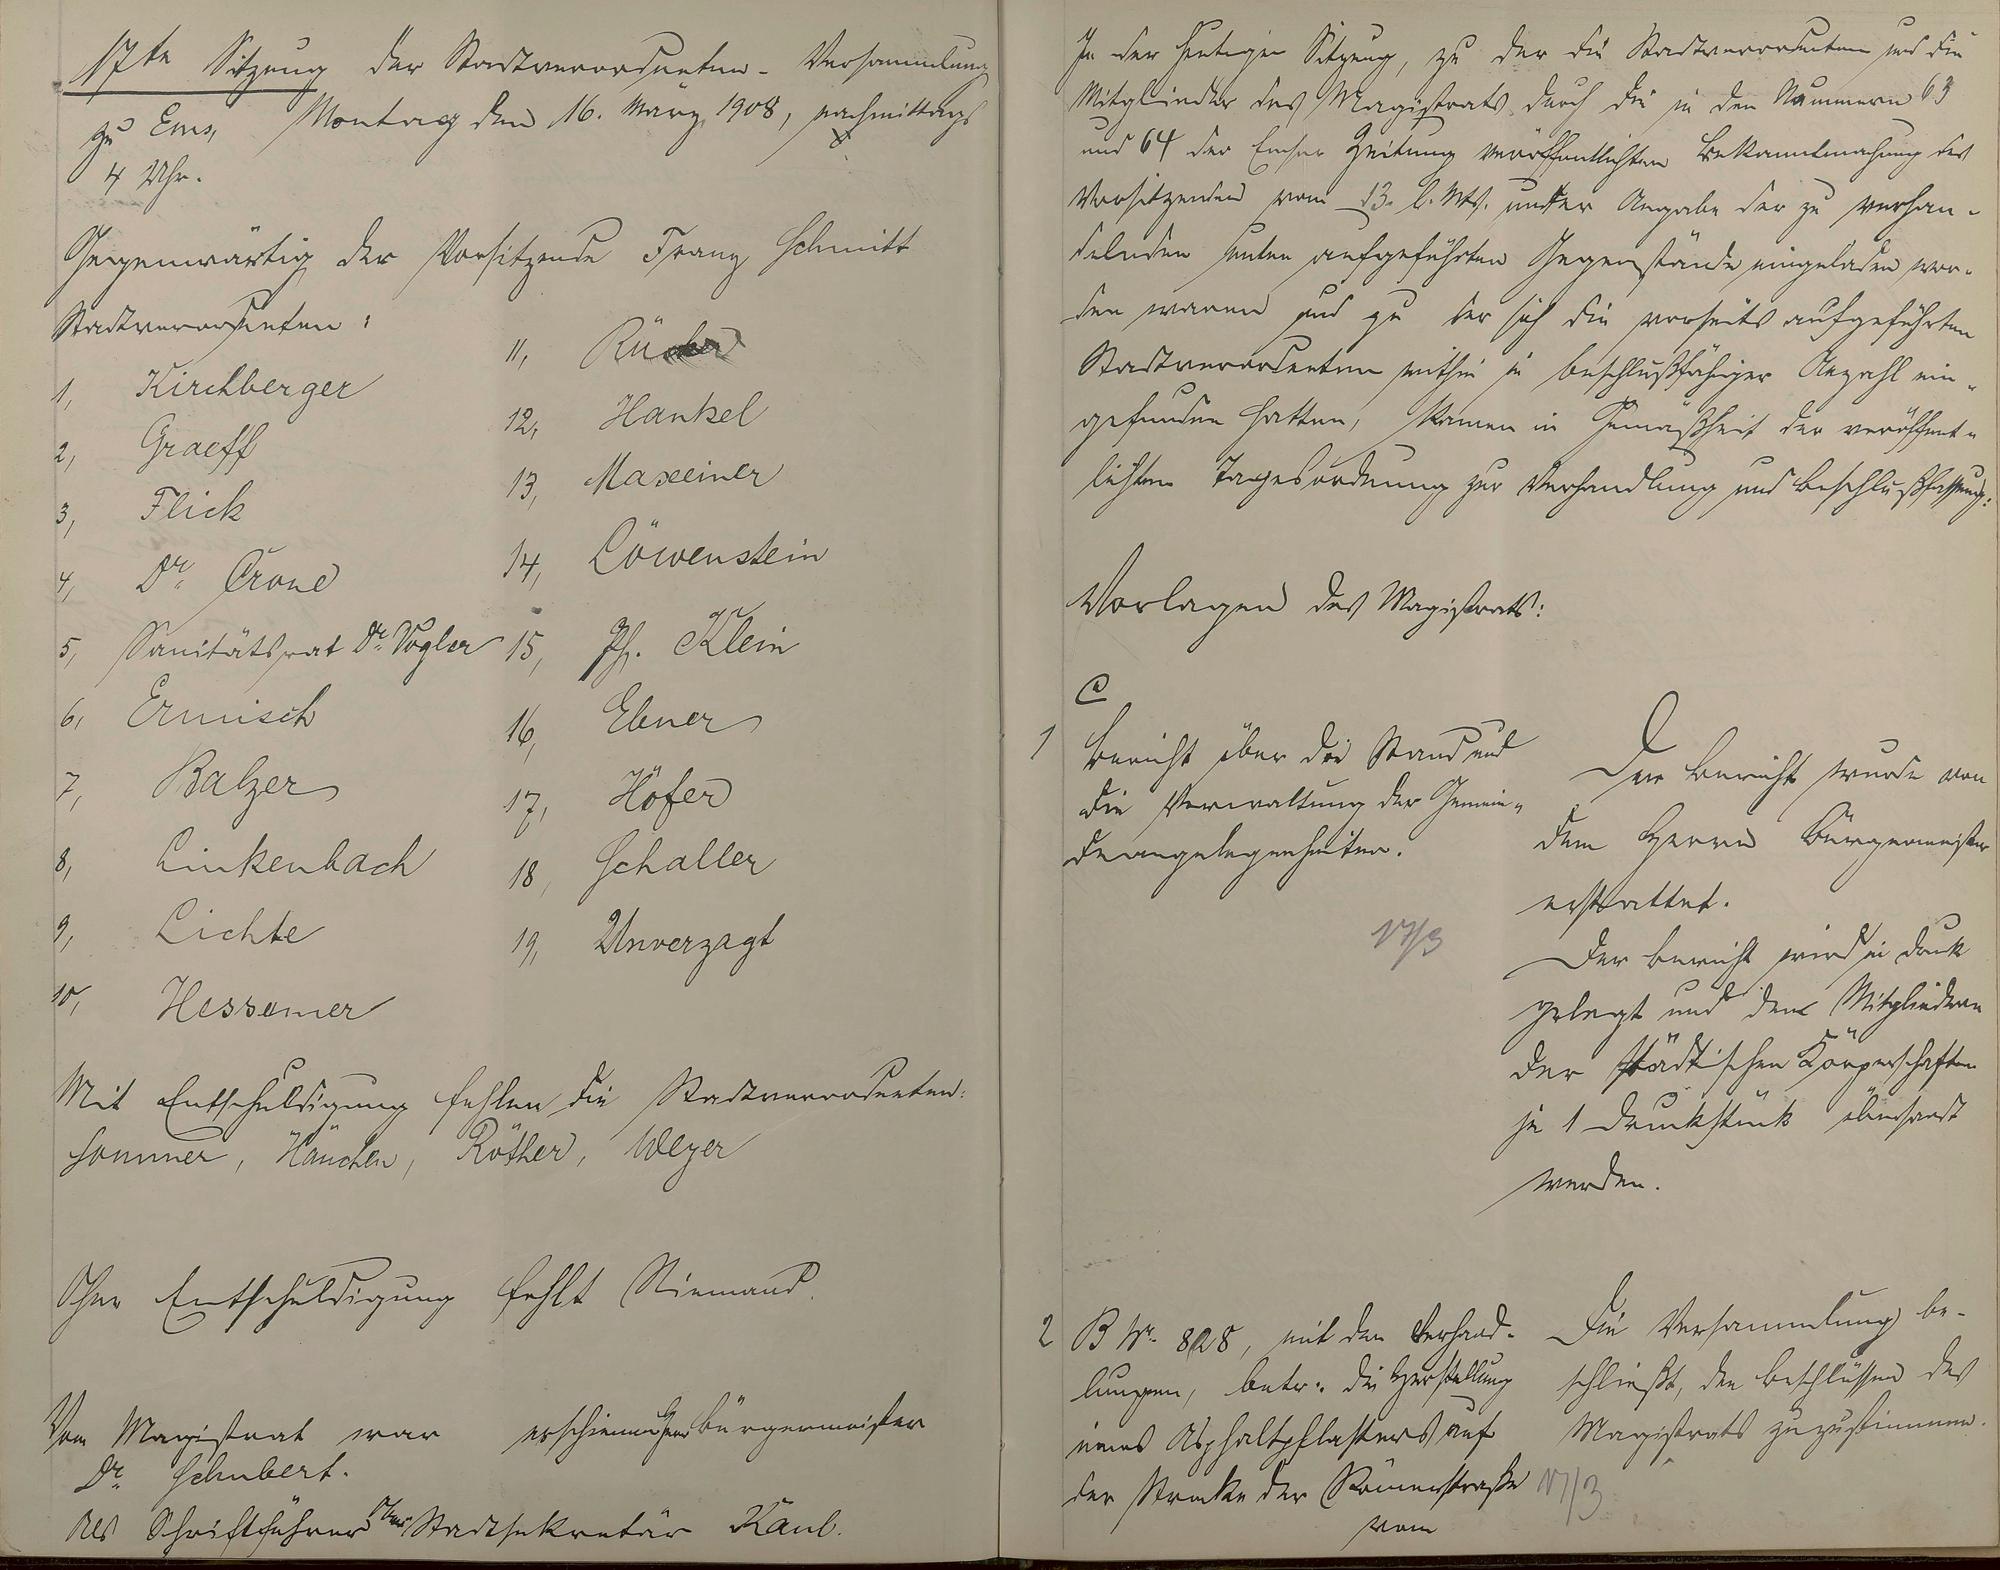 17te Sitzung der Stadtverordneten-Versammlung
zu Ems, Montag den 16. März 1908, nachmittags
4 Uhr.
Gegenwärtig der Vorsitzende Franz Schmitt
Stadtverordneten:
1, Kirchberger
2, Graeff
3, Flick
4, Dr. Crone
5, Sanitätsrat Dr. Vogler
6, Ermisch
7, Balzer
8, Linkenbach
9, Lichte
10, Hessemer
11,
12, Hankel
13, Maxeiner
14, Löwenstein
15, Ph. Klein
16, Ebner
17, Höfer
18, Schaller
19, Unverzagt
Mit Entschuldigung fehlen die Stadtverordneten:
Sommer, Hänchen, Röther, Weyer
Ohne Entschuldigung fehlt Niemand.
Vom Magistrat war erschienen Herr Bürgermeister
Dr. Schubert.
Als Schriftführer Ober Stadtsekretär Kaul.
In der heutigen Sitzung, zu der die Stadtverordneten und die
Mitglieder des Magistrats durch die in den Nummern 63
und 64 der Emser Zeitung veröffentlichten Bekanntmachung des
Vorsitzenden vom 13. l. Mts. unter Angabe der zu verhan-
delnden unten aufgeführten Gegenstände eingeladen wor-
den waren und zu der sich die vorseits aufgeführten
Stadtverordneten mithin in beschlußfähiger Anzahl ein-
gefunden hatten, kamen in Gemäßheit der veröffent-
lichten Tagesordnung zur Verhandlung und Beschlußfassung:
Vorlagen des Magistrats:
1 Bericht über den Stand und
die Verwaltung der Gemein-
deangelegenheiten.
17/3
Der Bericht wurde von
dem Herrn Bürgermeister
erstattet.
Der Bericht wird in Druck
gelegt und den Mitgliedern
der städtischen Körperschaften
je 1 Druckstück übersandt
werden.
2 B Nr. 828, mit den Verhand-
lungen, betr. die Herstellung
eines Asphaltpflasters auf
der Strecke der Römerstraße
vom
Die Versammlung be-
schließt, den Beschlüssen des
Magistrats zuzustimmen.
17/3